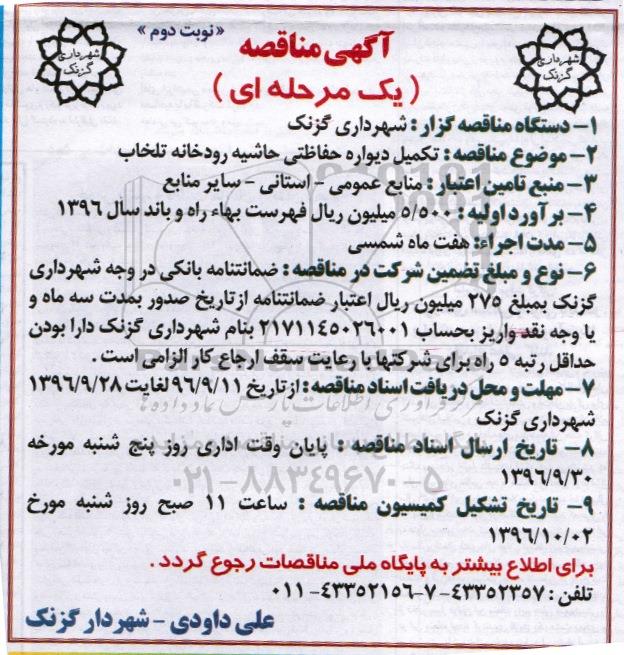 «نوبت دوم»
شهرداری گزنک
آگهی مناقصه
شهرداری گزنک
(یک مرحله ای)
۱- دستگاه مناقصه گزار: شهرداری گزنک
۲- موضوع مناقصه: تکمیل دیواره حفاظتی حاشیه رودخانه تلخاب
۳- منبع تامین اعتبار: منابع عمومی - استانی - سایر منابع
۴- برآورد اولیه: ۵/۵۰۰ میلیون ریال فهرست بهاء راه و باند سال ۱۳۹۶
۵- مدت اجراء: هفت ماه شمسی
۶- نوع و مبلغ تضمین شرکت در مناقصه: ضمانتنامه بانکی در وجه شهرداری
گزنک بمبلغ ۲۷۵ میلیون ریال اعتبار ضمانتنامه از تاریخ صدور بمدت سه ماه و
یا وجه نقد واریز بحساب ۲۱۷۱۱۴۵۰۲۶۰۰۱ بنام شهرداری گزنک دارا بودن
حداقل رتبه ۵ راه برای شرکتها با رعایت سقف ارجاع کار الزامی است.
۷- مهلت و محل دریافت اسناد مناقصه: از تاریخ ۹۶/۹/۱۱ لغایت ۱۳۹۶/۹/۲۸
شهرداری گزنک
۸- تاریخ ارسال اسناد مناقصه: پایان وقت اداری روز پنج شنبه مورخه
۱۳۹۶/۹/۳۰
۹- تاریخ تشکیل کمیسیون مناقصه: ساعت ۱۱ صبح روز شنبه مورخ
۱۳۹۶/۱۰/۰۲
برای اطلاع بیشتر به پایگاه ملی مناقصات رجوع گردد.
تلفن: ۴۳۳۵۲۳۵۷-۷-۴۳۳۵۲۱۵۶-۰۱۱
علی داودی - شهردار گزنک
۰۲۱-۸۸۳۴۹۶۷۰-۵